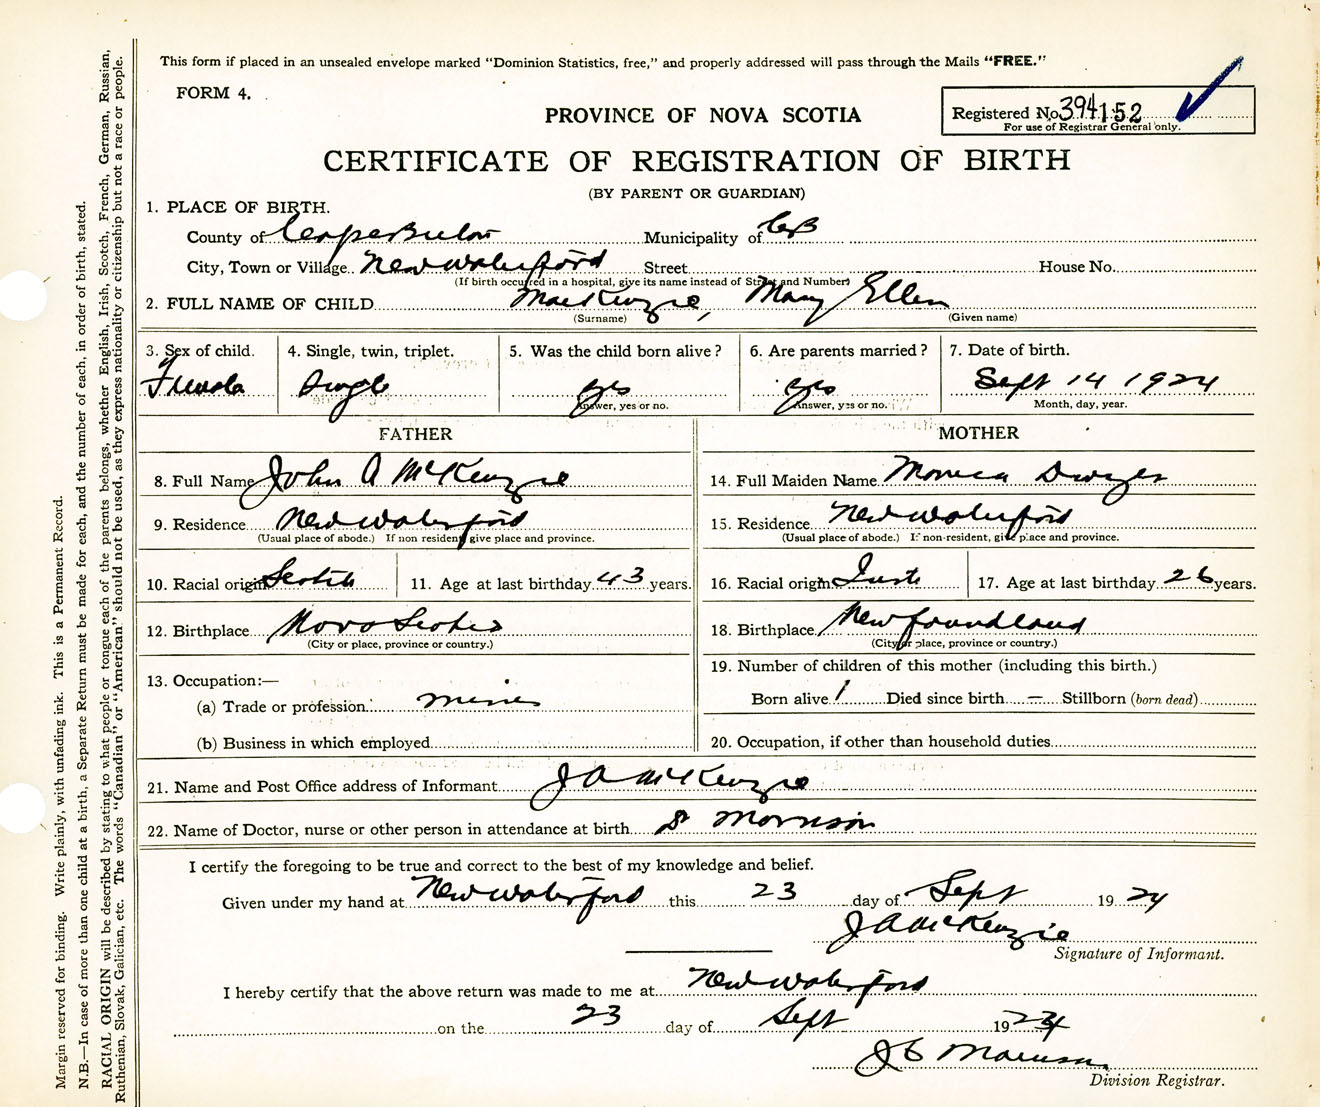 This form if placed in an unsealed envelope marked "Dominion Statistics, free," and properly addressed will pass through the Mails "FREE."
FORM 4.
PROVINCE OF NOVA SCOTIA
Registered No. 394152
For use of Registrar General only.
CERTIFICATE OF REGISTRATION OF BIRTH
(BY PARENT OR GUARDIAN)
1. PLACE OF BIRTH.
County of Cape Breton Municipality of CB
City, Town or Village New Waterford Street House No.
(If birth occurred in a hospital, give its name instead of Street and Number)
2. FULL NAME OF CHILD MacKenzie, Mary Ellen
(Surname) (Given name)
3. Sex of child. 4. Single, twin, triplet. 5. Was the child born alive? 6. Are parents married? 7. Date of birth.
Female Single yes yes Sept 14 1924
Answer, yes or no. Answer, yes or no. Month, day, year.
FATHER MOTHER
8. Full Name John A McKenzie 14. Full Maiden Name Monica Dwyer
9. Residence New Waterford 15. Residence New Waterford
(Usual place of abode.) If non resident, give place and province. (Usual place of abode.) If non-resident, give place and province.
10. Racial origin Scotch 11. Age at last birthday 43 years. 16. Racial origin 17. Age at last birthday 26 years.
12. Birthplace Nova Scotia 18. Birthplace Newfoundland
(City or place, province or country.) (City or place, province or country.)
19. Number of children of this mother (including this birth.)
13. Occupation:—
(a) Trade or profession miner Born alive 1 Died since birth — Stillborn (born dead)
(b) Business in which employed 20. Occupation, if other than household duties
21. Name and Post Office address of Informant J A McKenzie
22. Name of Doctor, nurse or other person in attendance at birth Dr Morrison
I certify the foregoing to be true and correct to the best of my knowledge and belief.
Given under my hand at New Waterford this 23 day of Sept 1924
J A McKenzie
Signature of Informant.
I hereby certify that the above return was made to me at New Waterford
on the 23 day of Sept 1924
Division Registrar.
Margin reserved for binding. Write plainly, with unfading ink. This is a Permanent Record.
N.B.—In case of more than one child at a birth, a Separate Return must be made for each, and the number of each, in order of birth, stated.
RACIAL ORIGIN will be described by stating to what people or tongue each of the parents belongs, whether English, Irish, Scotch, French, German, Russian,
Ruthenian, Slovak, Galician, etc. The words "Canadian" or "American" should not be used, as they express nationality or citizenship but not a race or people.